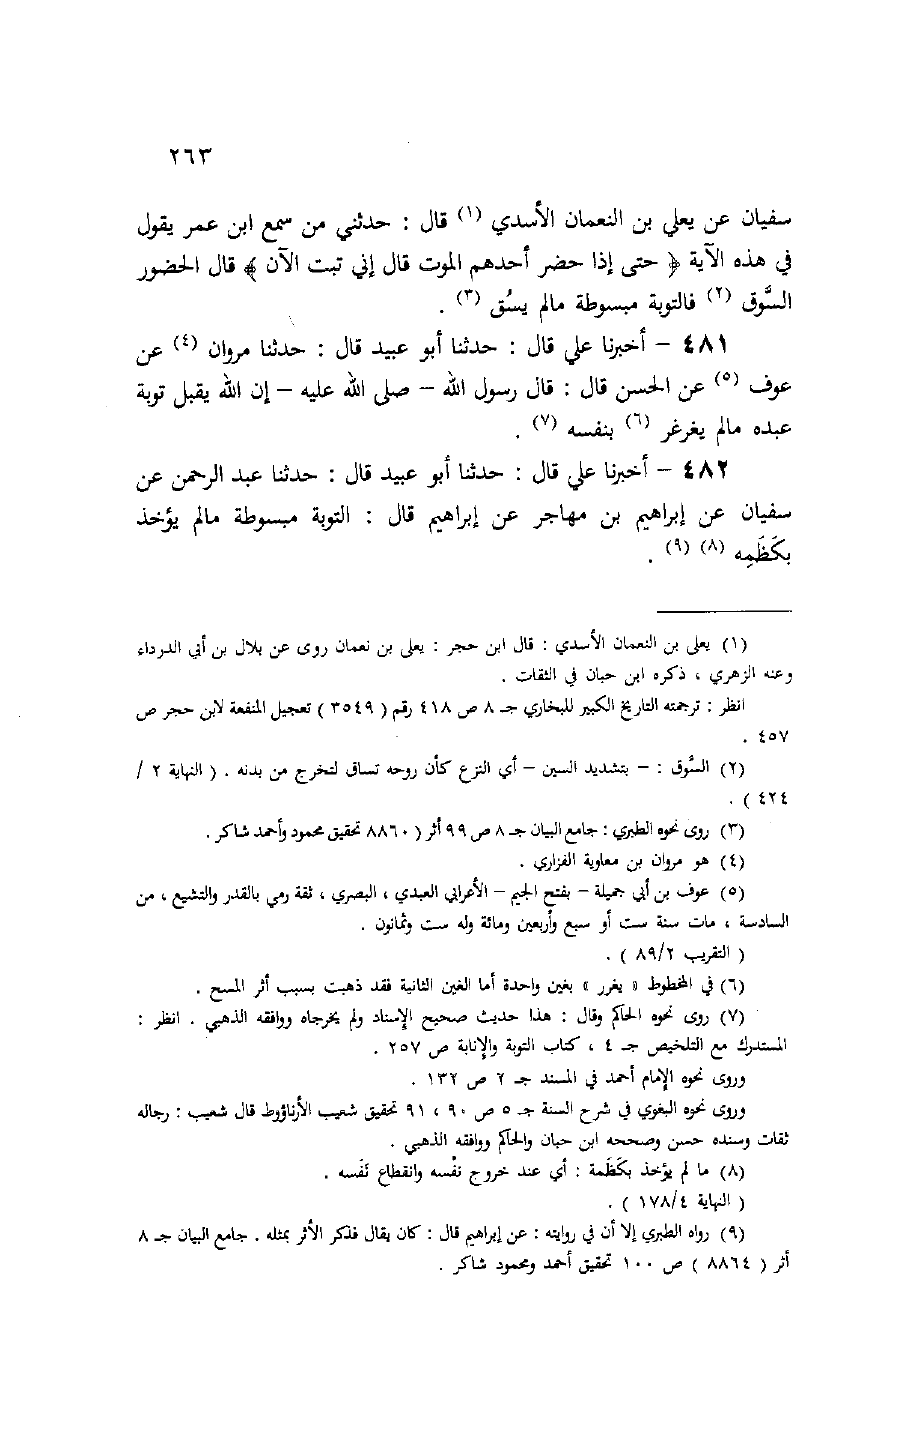 ٢٦٣
سفيان عن يعلي بن النعمان الأسدي (١) قال : حدثني من سمع ابن عمر يقول
في هذه الآية ﴿ حتى إذا حضر أحدهم الموت قال إني تبت الآن ﴾ قال الحضور
السَّوق (٢) فالتوبة مبسوطة مالم يسُق (٣) .
٤٨١ – أخبرنا علي قال : حدثنا أبو عبيد قال : حدثنا مروان (٤) عن
عوف (٥) عن الحسن قال : قال رسول الله – صلى الله عليه – إن الله يقبل توبة
عبده مالم يغرغر (٦) بنفسه (٧) .
٤٨٢ – أخبرنا علي قال : حدثنا أبو عبيد قال : حدثنا عبد الرحمن عن
سفيان عن إبراهيم بن مهاجر عن إبراهيم قال : التوبة مبسوطة مالم يؤخذ
بكَظَمِه (٨) (٩) .
(١) يعلى بن النعمان الأسدي : قال ابن حجر : يعلى بن نعمان روى عن بلال بن أبي الدرداء
وعنه الزهري ، ذكره ابن حبان في الثقات .
انظر : ترجمته التاريخ الكبير للبخاري جـ ٨ ص ٤١٨ رقم ( ٣٥٤٩ ) تعجيل المنفعة لابن حجر ص
٤٥٧ .
(٢) السَّوق : – بتشديد السين – أي النزع كأن روحه تساق لتخرج من بدنه . ( النهاية ٢ /
٤٢٤ ) .
(٣) روى نحوه الطبري : جامع البيان جـ ٨ ص ٩٩ أثر ( ٨٨٦٠ تحقيق محمود وأحمد شاكر .
(٤) هو مروان بن معاوية الفزاري .
(٥) عوف بن أبي جميلة – بفتح الجيم – الأعرابي العبدي ، البصري ، ثقة رمي بالقدر والتشيع ، من
السادسة ، مات سنة ست أو سبع وأربعين ومائة وله ست وثمانون .
( التقريب ٨٩/٢ ) .
(٦) في المخطوط « يغرر » بغين واحدة أما الغين الثانية فقد ذهبت بسبب أثر المسح .
(٧) روى نحوه الحاكم وقال : هذا حديث صحيح الإسناد ولم يخرجاه ووافقه الذهبي . انظر :
المستدرك مع التلخيص جـ ٤ ، كتاب التوبة والإنابة ص ٢٥٧ .
وروى نحوه الإمام أحمد في المسند جـ ٢ ص ١٣٢ .
وروى نحوه البغوي في شرح السنة جـ ٥ ص ٩٠ ، ٩١ تحقيق شعيب الأرناؤوط قال شعيب : رجاله
ثقات وسنده حسن وصححه ابن حبان والحاكم ووافقه الذهبي .
(٨) ما لم يؤخذ بكَظَمة : أي عند خروج نفْسه وانقطاع نَفَسه .
( النهاية ١٧٨/٤ ) .
(٩) رواه الطبري إلا أن في روايته : عن إبراهيم قال : كان يقال فذكر الأثر بمثله . جامع البيان جـ ٨
أثر ( ٨٨٦٤ ) ص ١٠٠ تحقيق أحمد ومحمود شاكر .